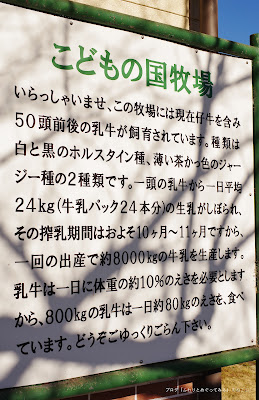 こどもの国牧場
いらっしゃいませ、この牧場には現在仔牛を含み
50頭前後の乳牛が飼育されています。種類は
白と黒のホルスタイン種、薄い茶かっ色のジャー
ジー種の2種類です。一頭の乳牛から一日平均
24kg(牛乳パック24本分)の生乳がしぼられ、
その搾乳期間はおよそ10ヶ月〜11ヶ月ですから、
一回の出産で約8000kgの牛乳を生産します。
乳牛は一日に体重の約10%のえさを必要とします
から、800kgの乳牛は一日約80kgのえさを、食べ
ています。どうぞごゆっくりごらん下さい。